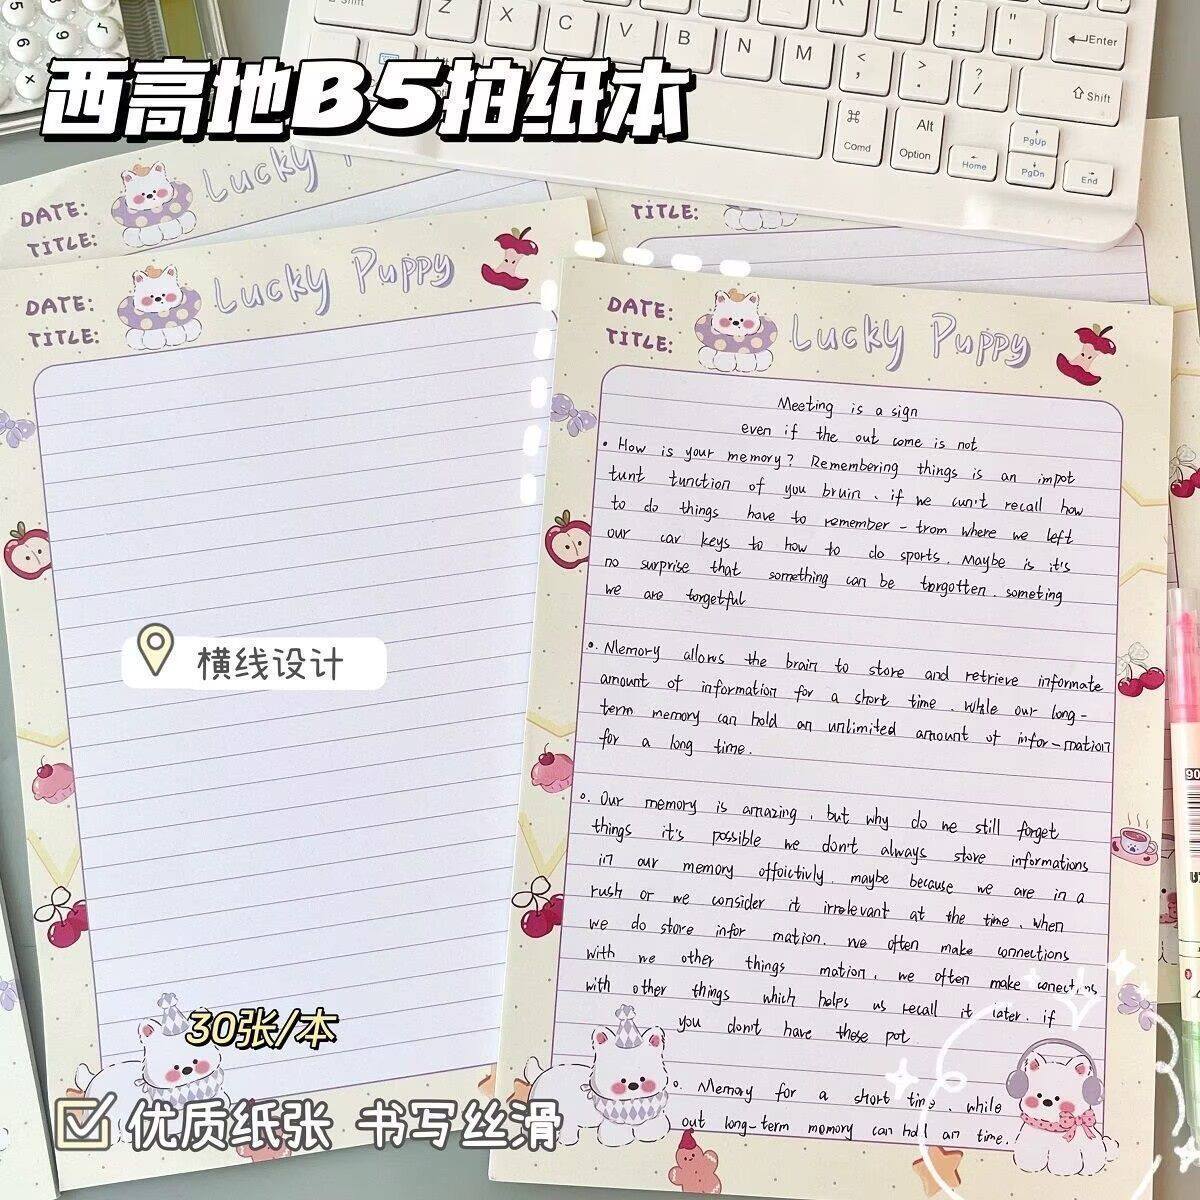 西高地B5拍纸本
Z X C V B N M K L ; : " ' Enter
< , > . ? / Shift
Comd Alt Option Home PgUp PgDn End
DATE:
TITLE:
Lucky
TITLE:
DATE:
TITLE:
Lucky Puppy
横线设计
30张/本
优质纸张 书写丝滑
DATE:
TITLE:
Lucky Puppy
Meeting is a sign
even if the out come is not
• How is your memory? Remembering things is an impot
tunt tunction of you bruin、if we cun't recall how
to do things have to remember - trom where we left
our car keys to how to do sports. Maybe is it's
no surprise that something can be torgotten. someting
we are torgetful
o. Memory allows the brain to store and retrieve informate
amount of information for a short time. While our long-
term memory can hold an unlimited amount of infor-mation
for a long time.
o. Our memory is amazing, but why do we still forget
things it's possible we don't always store informations
in our memory offoictivly. maybe because we are in a
rush or we consider it irrelevant at the time. when
we do store infor mation. we often make connections
with we other things mation. we often make conections
with other things which holps us recall it later. if
you don't have these pot
o. Memory for a short time. while
out long-term momory can hold an time.